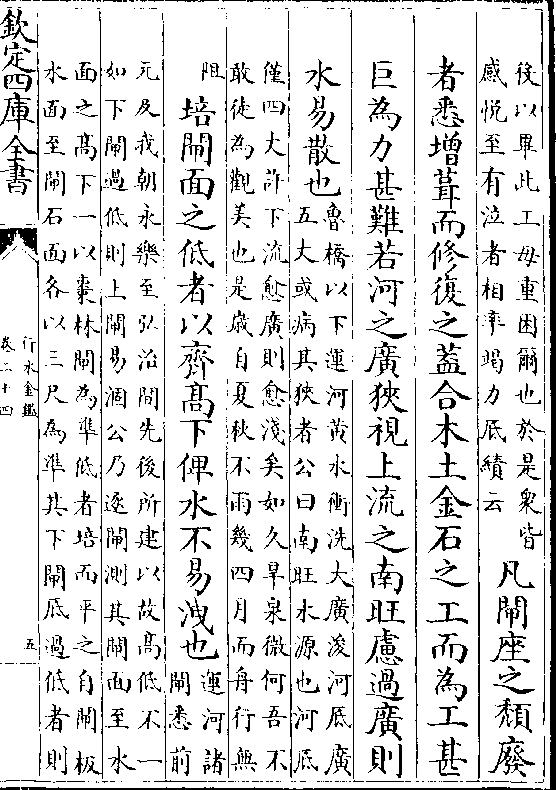 後以畢此工毋重困爾也於是衆皆
感悦至有泣者相率竭力厎績云
凡閘座之頽廢
者悉增葺而修復之蓋合木土金石之工而為工甚
巨為力甚難若河之廣狹視上流之南旺慮過廣則
水易散也
魯橋以下運河黄水衝洗大廣浚河底廣
五大或病其狹者公曰南旺水源也河底
僅四大許下流愈廣則愈淺矣如久旱泉微何吾不
敢徒為觀美也是嵗自夏秋不雨幾四月而舟行無
阻
培閘面之低者以齊髙下俾水不易洩也
運河諸
閘悉前
元及我朝永樂至弘治間先後所建以故髙低不一
如下閘過低則上閘易涸公乃逐閘測其閘面至水
面之髙下一以棗林閘為準低者培而平之自閘板
水面至閘石面各以三尺為準其下閘底過低者則
欽定四庫全書
行水金鑑
卷二十四
五